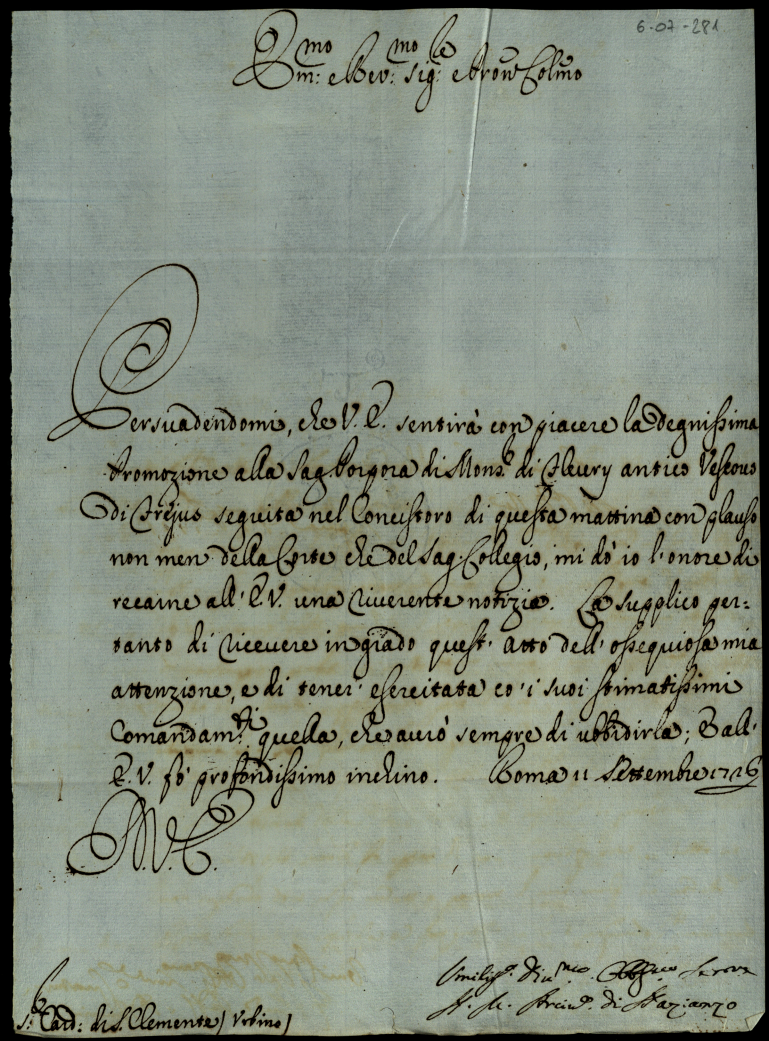 6-07-281
Em:mo e Rev:mo Sig:re e Pron Colmo
Persuadendomi, che V. E. sentirà con piacere la degnissima
Promozione alla Sag. Porpora di Mons.r di Fleury antico Vescovo
di Frejus seguita nel Concistoro di questa mattina con plauso
non men della Corte che del Sag. Collegio, mi dò io l'onore di
recarne all' E. V. una riverente notizia. La supplico per=
tanto di ricevere in grado quest' atto dell' ossequiosa mia
attenzione, e di tener esercitata co' i suoi stimatissimi
Comandam.ti quella, che avrò sempre di ubbidirla; E all'
E. V. fò profondissimo inchino. Roma 11 Settembre 1726
D. V. E.
Umiliss.o Div.mo Obblig.mo Servre
di Nazianzo
S:r Card: di S. Clemente / Urbino /